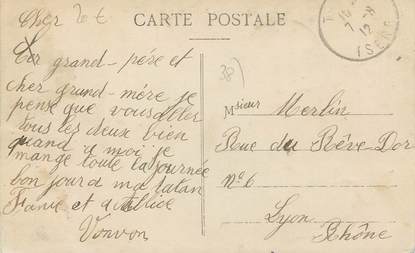 CARTE POSTALE
Cher
Cer grand-père et
cher grand-mère je
pense que vous aller
tous les deux bien
quand a moi je
mange toute la journée
bon jour a ma tatan
Fanie et
Vonvon
38)
ISERE
Msieur Merlin
Rue du Rêve Dor
N° 6
Lyon
Rhône